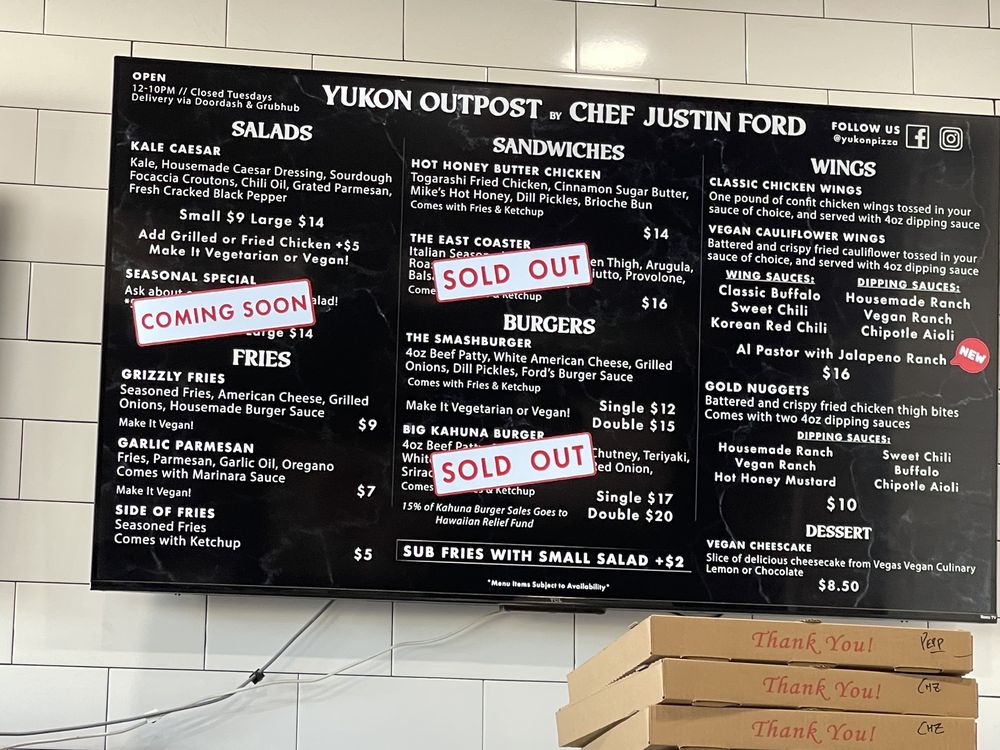 OPEN
12-10PM // Closed Tuesdays
Delivery via Doordash & Grubhub
YUKON OUTPOST BY CHEF JUSTIN FORD
FOLLOW US
@yukonpizza
SALADS
KALE CAESAR
Kale, Housemade Caesar Dressing, Sourdough
Focaccia Croutons, Chili Oil, Grated Parmesan,
Fresh Cracked Black Pepper
Small $9 Large $14
Add Grilled or Fried Chicken +$5
Make It Vegetarian or Vegan!
SEASONAL SPECIAL
Ask about
COMING SOON
Large $14
FRIES
GRIZZLY FRIES
Seasoned Fries, American Cheese, Grilled
Onions, Housemade Burger Sauce
Make It Vegan!
$9
GARLIC PARMESAN
Fries, Parmesan, Garlic Oil, Oregano
Comes with Marinara Sauce
Make It Vegan!
$7
SIDE OF FRIES
Seasoned Fries
Comes with Ketchup
$5
SANDWICHES
HOT HONEY BUTTER CHICKEN
Togarashi Fried Chicken, Cinnamon Sugar Butter,
Mike's Hot Honey, Dill Pickles, Brioche Bun
Comes with Fries & Ketchup
$14
THE EAST COASTER
Italian Thigh, Arugula,
Provolone,
SOLD OUT
Ketchup
$16
BURGERS
THE SMASHBURGER
4oz Beef Patty, White American Cheese, Grilled
Onions, Dill Pickles, Ford's Burger Sauce
Comes with Fries & Ketchup
Make It Vegetarian or Vegan!
Single $12
Double $15
BIG KAHUNA BURGER
4oz Beef Patty Chutney, Teriyaki,
Red Onion,
SOLD OUT
Comes & Ketchup
Single $17
Double $20
15% of Kahuna Burger Sales Goes to
Hawaiian Relief Fund
SUB FRIES WITH SMALL SALAD +$2
*Menu Items Subject to Availability*
WINGS
CLASSIC CHICKEN WINGS
One pound of confit chicken wings tossed in your
sauce of choice, and served with 4oz dipping sauce
VEGAN CAULIFLOWER WINGS
Battered and crispy fried cauliflower tossed in your
sauce of choice, and served with 4oz dipping sauce
WING SAUCES:
Classic Buffalo
Sweet Chili
Korean Red Chili
DIPPING SAUCES:
Housemade Ranch
Vegan Ranch
Chipotle Aioli
Al Pastor with Jalapeno Ranch
NEW
$16
GOLD NUGGETS
Battered and crispy fried chicken thigh bites
Comes with two 4oz dipping sauces
DIPPING SAUCES:
Housemade Ranch
Vegan Ranch
Hot Honey Mustard
Sweet Chili
Buffalo
Chipotle Aioli
$10
DESSERT
VEGAN CHEESCAKE
Slice of delicious cheesecake from Vegas Vegan Culinary
Lemon or Chocolate
$8.50
TCL
Roku TV
Thank You! PEPP
Thank You! CHZ
Thank You! CHZ